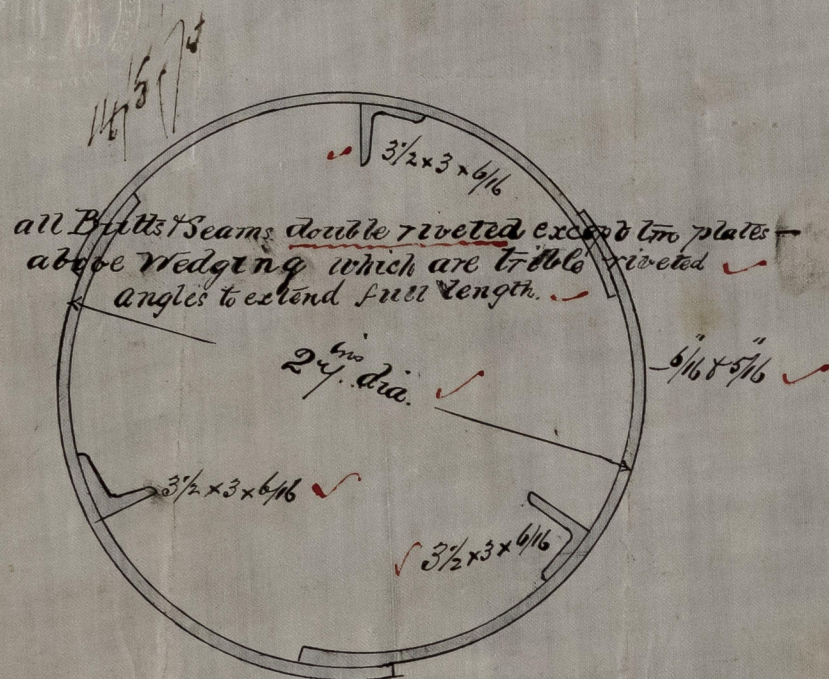 3½ x 3 x 6/16
all Butts & Seams double riveted except two plates
above Wedging which are trible riveted
angles to extend full length.
ins dia.
6/16" & 5/16"
3½ x 3 x 6/16
3½ x 3 x 6/16